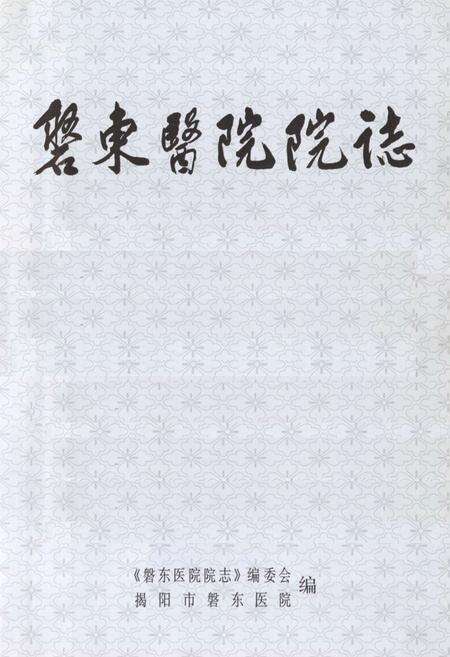 磐東醫院院誌
《磐东医院院志》编委会
揭阳市磐东医院 编